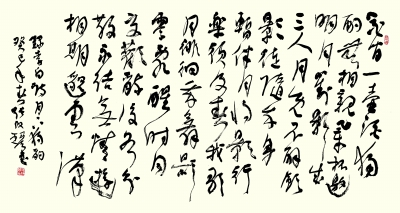 花間一壺酒獨
酌無相親舉杯邀
明月對影成
三人月既不解飲
影徒隨我身
暫伴月將影行
樂須及春我歌
月徘徊我舞影
零亂醒時同
交歡醉後各分
散永結無情遊
相期邈雲漢
李白詩月下獨酌
癸巳年